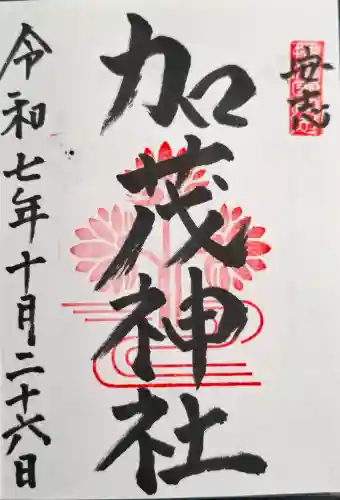 安志
加茂神社
令和七年十月二十六日